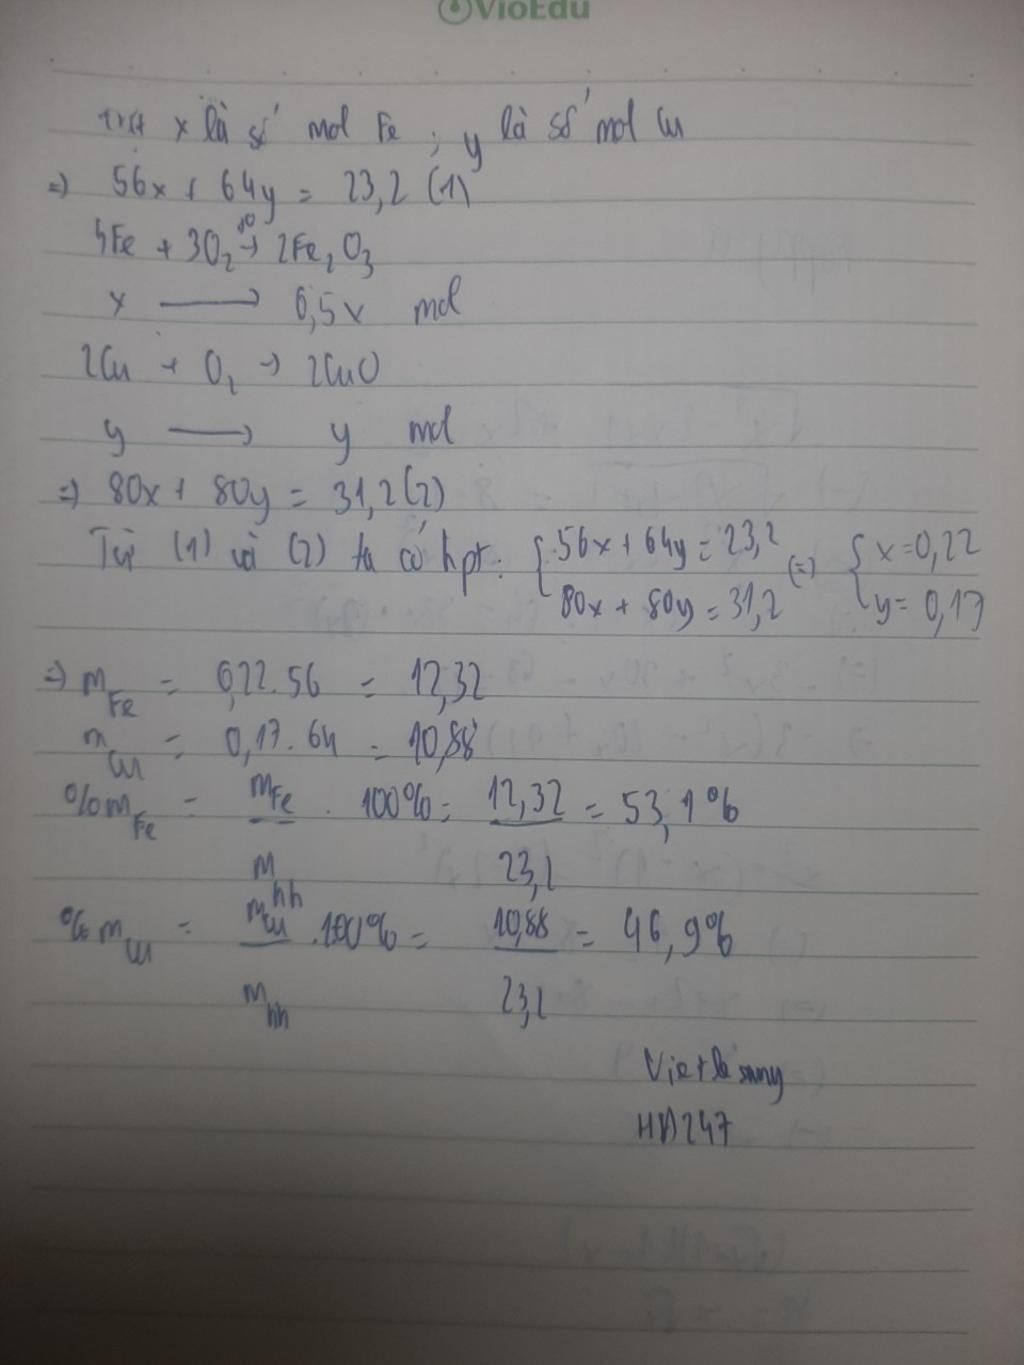 VioEdu
x là số mol Fe ; y là số mol Cu
=) 56x + 64y = 23,2 (1)
4Fe + 3O2 t0→ 2Fe2O3
x → 0,5x mol
2Cu + O2 → 2CuO
y → y mol
=) 80x + 80y = 31,2 (2)
Từ (1) và (2) ta có hpt: { 56x + 64y = 23,2 (=) { x = 0,22
80x + 80y = 31,2 y = 0,17
=) mFe = 0,22.56 = 12,32
mCu = 0,17.64 = 10,88
%mFe = mFe . 100% = 12,32 = 53,1%
mhh 23,2
%mCu = mCu .100% = 10,88 = 46,9%
mhh 23,2
HD247